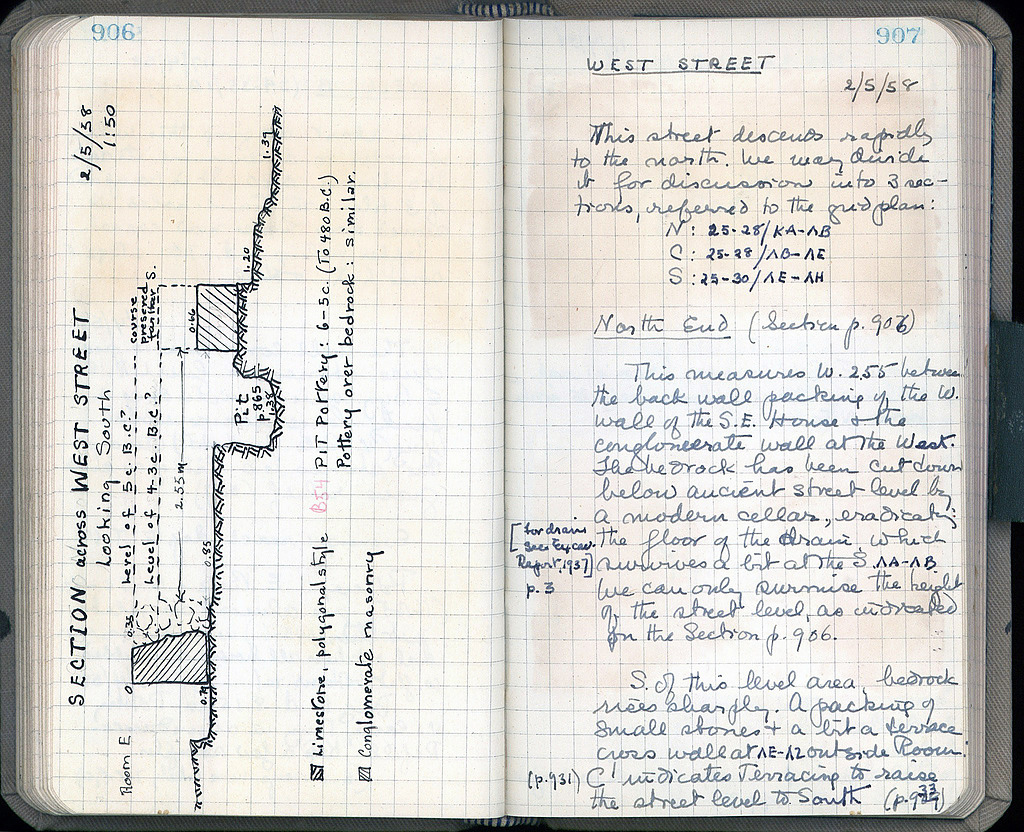 906
SECTION across WEST STREET
Looking South
2/5/38
1:50
Room E
0
0.35
Level of 5 c. B.C.?
Level of 4-3 c. B.C.?
course
preserved
farther S.
2.55 m
0.66
0.79
0.85
Pit
p.865
1.38
1.20
1.39
Limestone, polygonal style
B54
PIT POTTERY: 6-5 c. (To 480 B.C.)
Pottery over bedrock: similar.
Conglomerate masonry
907
WEST STREET
2/5/58
This street descends rapidly
to the north. We may divide
it for discussion into 3 sec-
tions, referred to the grid plan:
N: 25-28/KA-ΛB
C: 25-28/ΛB-ΛE
S: 25-30/ΛE-ΛH
North End (Section p. 906)
This measures W. 2.55 between
the back wall packing of the W.
wall of the S.E. House & the
conglomerate wall at the West.
The bedrock has been cut down
below ancient street level by
a modern cellar, eradicating
[for drain
see Excav.
Report, 1937]
p. 3
the floor of the drain which
survives a bit at the S. ΛA-ΛB.
We can only surmise the height
of the street level, as indicated
on the Section p. 906.
S. of this level area, bedrock
rises sharply. A packing of
small stones + a bit a terrace
cross wall at ΛE-ΛZ outside Room
(p.931) C' indicates Terracing to raise
the street level to South (p.933)